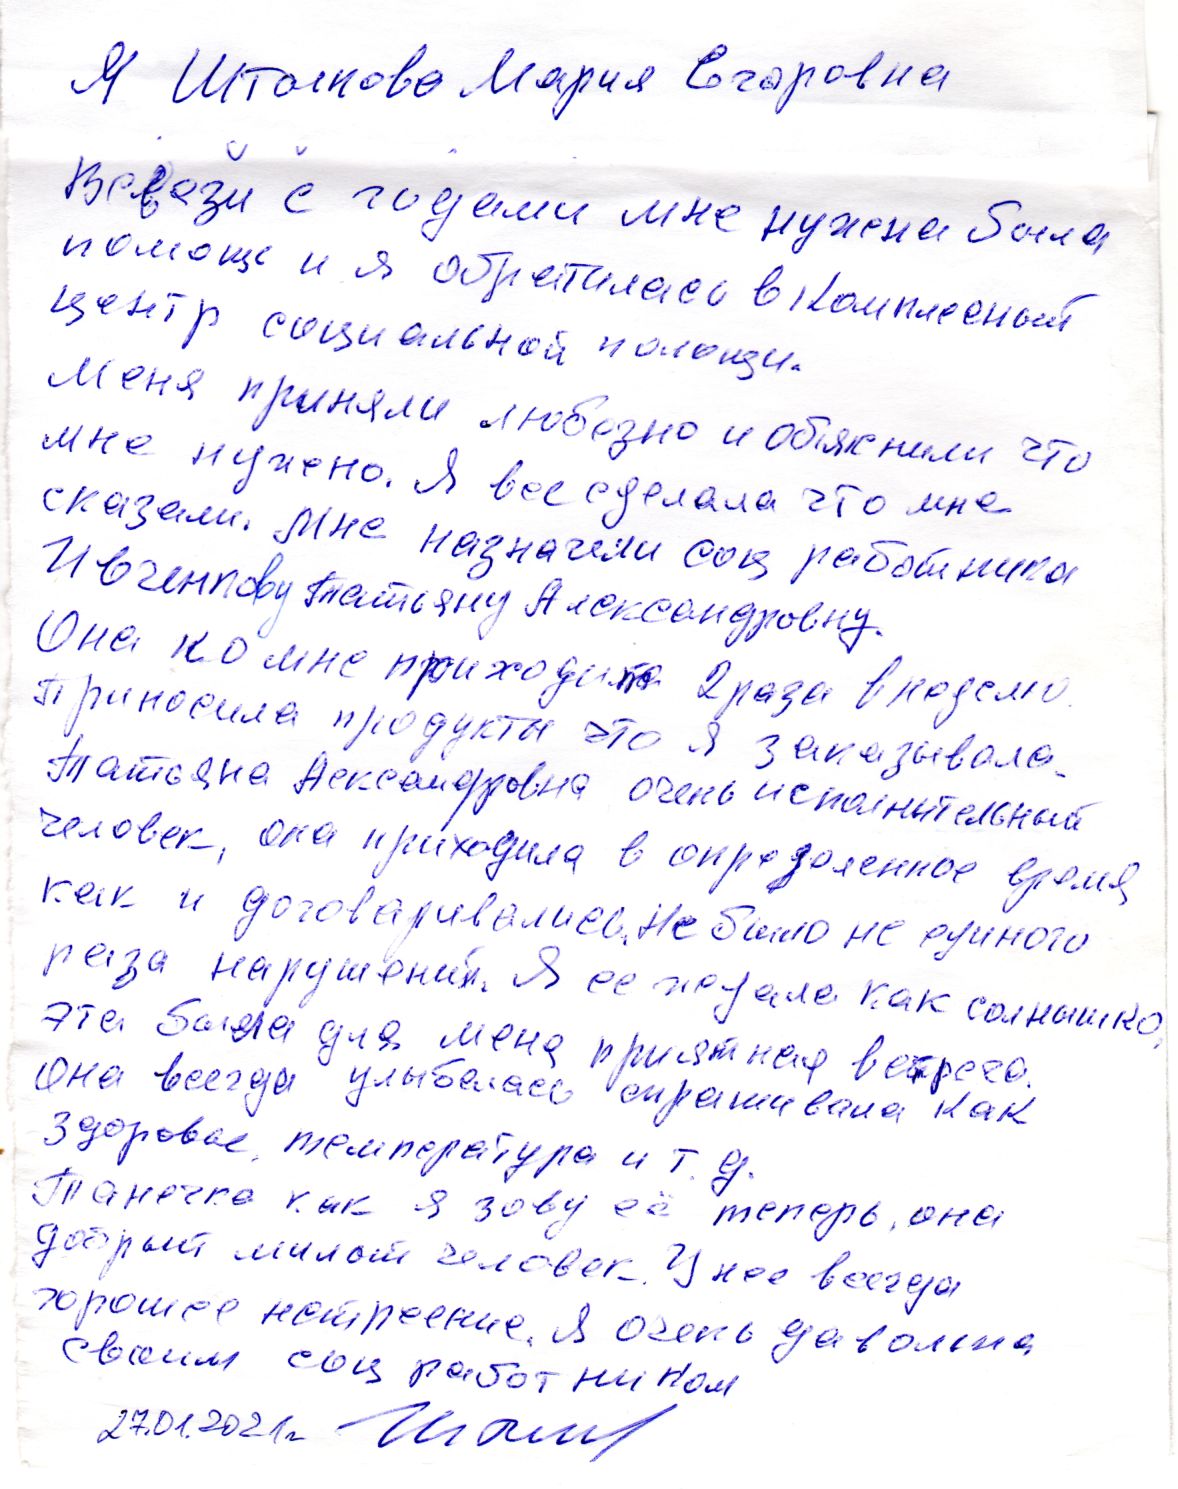 Я Штолкова Мария Егоровна
Всвези с годами мне нужена была
помощь и я обратилась в Комплесный
центр социальной помощи.
Меня приняли любезно и обяснили что
мне нужено. Я все сделала что мне
сказали. Мне назначили соц работника
Ивченкову Татьяну Александровну.
Она ко мне приходила 2 раза в неделю.
Приносила продукты что я заказывала.
Татьяна Александровна очень исполнительный
человек, она приходила в определенное время
как и договаривались. Не было не единого
раза нарушений. Я ее ждала как солнышко,
Эта была для меня приятная встреча.
Она всегда улыбалась спрашивала как
здоровье, температура и т. д.
Танечка как я зову её теперь, она
добрый милый человек. У нее всегда
хорошее настроение. Я очень давольна
своим соц работником
27.01.2021г